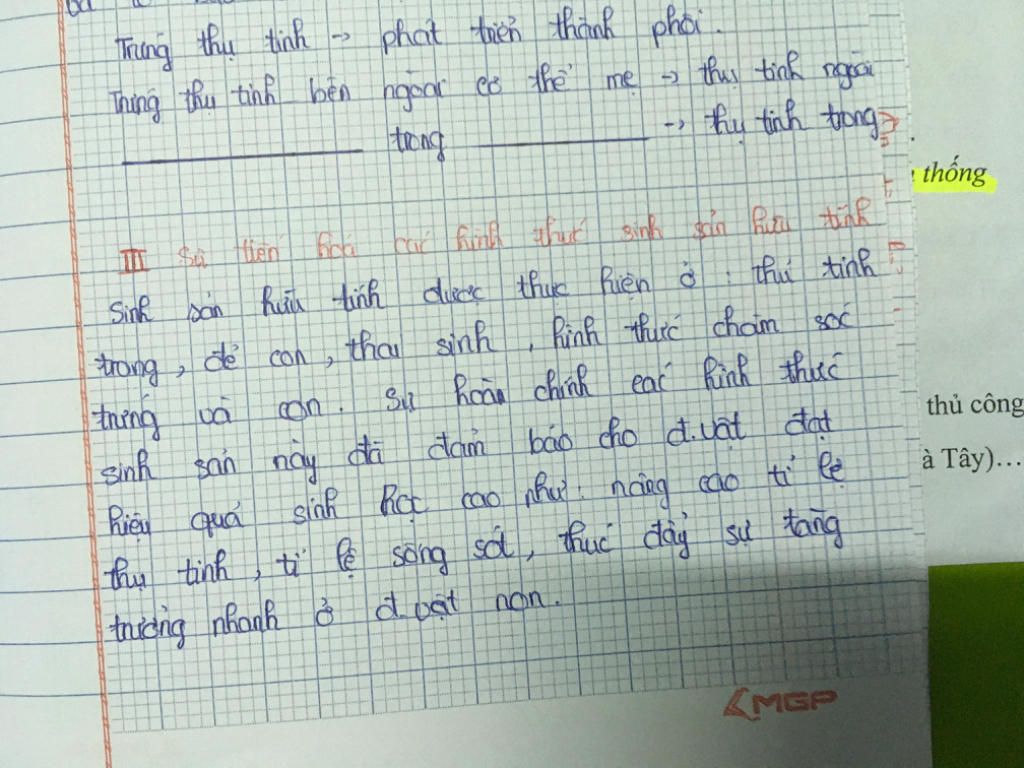 Trứng thụ tinh -> phát triển thành phôi.
Trứng thụ tinh bên ngoài cơ thể mẹ -> thụ tinh ngoài
trong -> thụ tinh trong
III Sự tiến hoá các hình thức sinh sản hữu tính
Sinh sản hữu tính được thực hiện ở : thụ tinh
trong, đẻ con, thai sinh, hình thức chăm sóc
trứng và con. Sự hoàn chỉnh các hình thức
sinh sản này đã đảm bảo cho đ.vật đạt
hiệu quả sinh học cao như: nâng cao tỉ lệ
thụ tinh, tỉ lệ sống sót, thúc đẩy sự tăng
trưởng nhanh ở đ.vật non.
MGP
thống
thủ công
à Tây)...